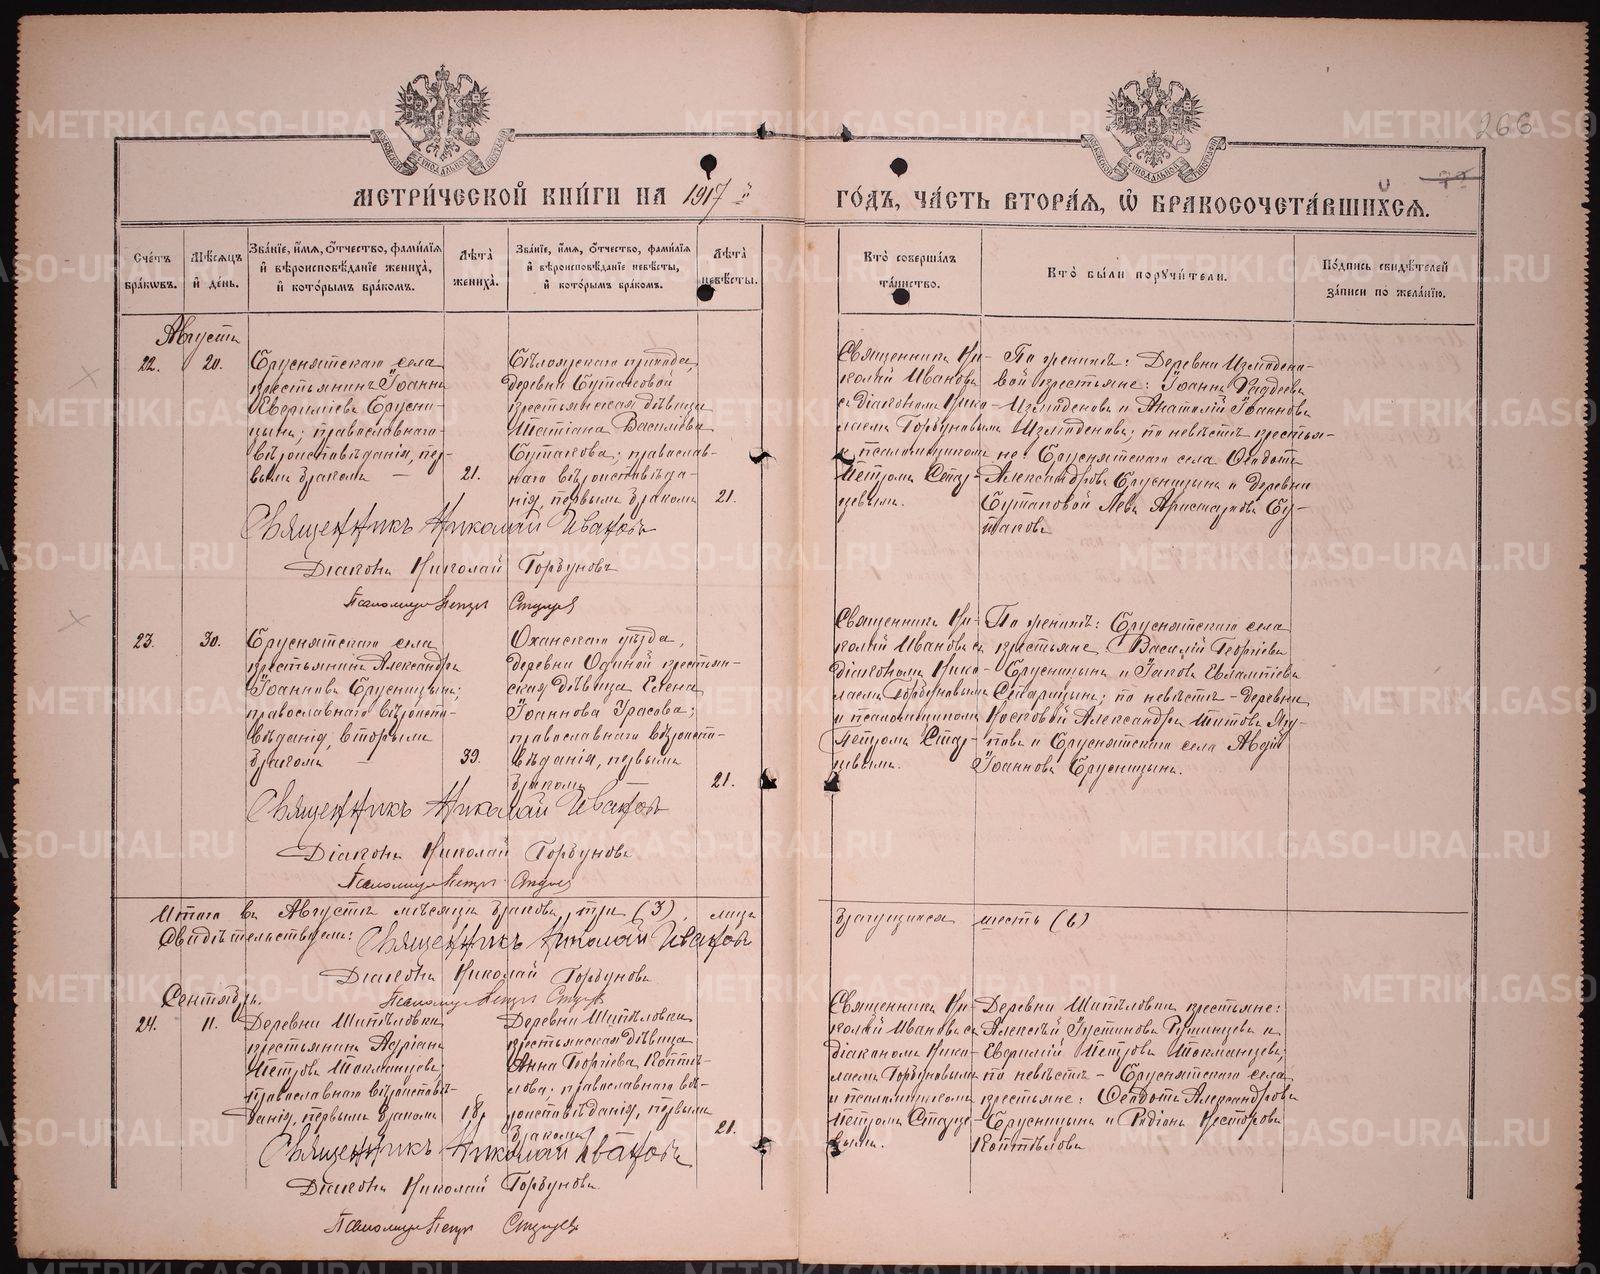 266
МЕТРИ́ЧЕСКОЙ КНИ́ГИ НА 1917 й ГО́ДЪ, ЧА́СТЬ ВТОРА́Я, Ѡ БРАКОСОЧЕТА́ВШИХСЯ.
Сче́тъ бра́ковъ.
Мѣ́сяцъ и́ де́нь.
Зва́нїе, и́мя, ѻ́тчество, фами́лїя и́ вѣроисповѣ́данїе жениха́, и́ кото́рымъ бра́комъ.
Лѣта̀ жениха̀.
Зва́нїе, и́мя, ѻ́тчество, фами́лїя и́ вѣроисповѣ́данїе невѣ́сты, и́ кото́рымъ бра́комъ.
Лѣта̀ невѣ́сты.
Кто̀ соверша́лъ та́инство.
Кто̀ бы́ли поручи́тели.
По́дпись свидѣ́телей за́писи по жела́нїю.
Августъ
22.
20.
Бруснятскаго села
крестьянинъ Іоаннъ
Евфиміевъ Брусни-
цынъ; православнаго
вѣроисповѣданія, пер-
вымъ бракомъ
21.
Бѣлоярскаго прихода,
деревни Бутаковой
крестьянская дѣвица
Татіана Васильева
Бутакова; православ-
наго вѣроисповѣда-
нія, первымъ бракомъ
21.
Священникъ Ни-
колай Ивановъ
съ діакономъ Нико-
лаемъ Горбуновымъ
и псаломщикомъ
Петромъ Стар-
цевымъ.
По женихѣ: Деревни Измодено-
вой крестьяне: Іоаннъ Фадеевъ
Измоденовъ и Анатолій Іоанновъ
Измоденовъ; по невѣстѣ крестья-
не: Бруснятскаго села Ѳеодотъ
Александровъ Брусницынъ и деревни
Бутаковой Левъ Аристарховъ Бу-
таковъ
Священникъ Николай Ивановъ
Діаконъ Николай Горбуновъ
Псаломщикъ Петръ Старцевъ
23.
30.
Бруснятскаго села
крестьянинъ Александръ
Іоанновъ Брусницынъ;
православнаго вѣроиспо-
вѣданія, вторымъ
бракомъ
39.
Оханскаго уѣзда,
деревни Одиной крестьян-
ская дѣвица Елена
Іоаннова Урасова;
православнаго вѣроиспо-
вѣданія, первымъ
бракомъ
21.
Священникъ Ни-
колай Ивановъ съ
діакономъ Нико-
лаемъ Горбуновымъ
и псаломщикомъ
Петромъ Стар-
цевымъ.
По женихѣ: Бруснятскаго села
крестьяне Василій Георгіевъ
Брусницынъ и Іаковъ Евлампіевъ
Старицынъ; по невѣстѣ – деревни
Носковой Александръ Титовъ
и Бруснятскаго села Авдій
Іоанновъ Брусницынъ.
Священникъ Николай Ивановъ
Діаконъ Николай Горбуновъ
Псаломщикъ Петръ Старцевъ
Итого въ Августѣ мѣсяцѣ браковъ три (3), лицъ брачущихся шесть (6)
Свидѣтельствуемъ: Священникъ Николай Ивановъ
Діаконъ Николай Горбуновъ
Псаломщикъ Петръ Старцевъ
Сентябрь.
24.
11.
Деревни Шипѣловки
крестьянинъ Адріанъ
Петровъ Токманцевъ,
православнаго вѣроисповѣ-
данія, первымъ бракомъ
18.
Деревни Шипѣловки
крестьянская дѣвица
Анна Георгіева Коптѣ-
лова; православнаго вѣ-
роисповѣданія, первымъ
бракомъ
21.
Священникъ Ни-
колай Ивановъ съ
діакономъ Нико-
лаемъ Горбуновымъ
и псаломщикомъ
Петромъ Старце-
вымъ.
Деревни Шипѣловки крестьяне:
Алексѣй Іустиновъ и
Евфимій Петровъ Токманцевъ;
по невѣстѣ – Бруснятскаго села
крестьяне: Ѳеодотъ Александровъ
Брусницынъ и Родіонъ Несторовъ
Коптѣловъ
Священникъ Николай Ивановъ
Діаконъ Николай Горбуновъ.
Псаломщикъ Петръ Старцевъ
METRIKI.GASO-URAL.RU